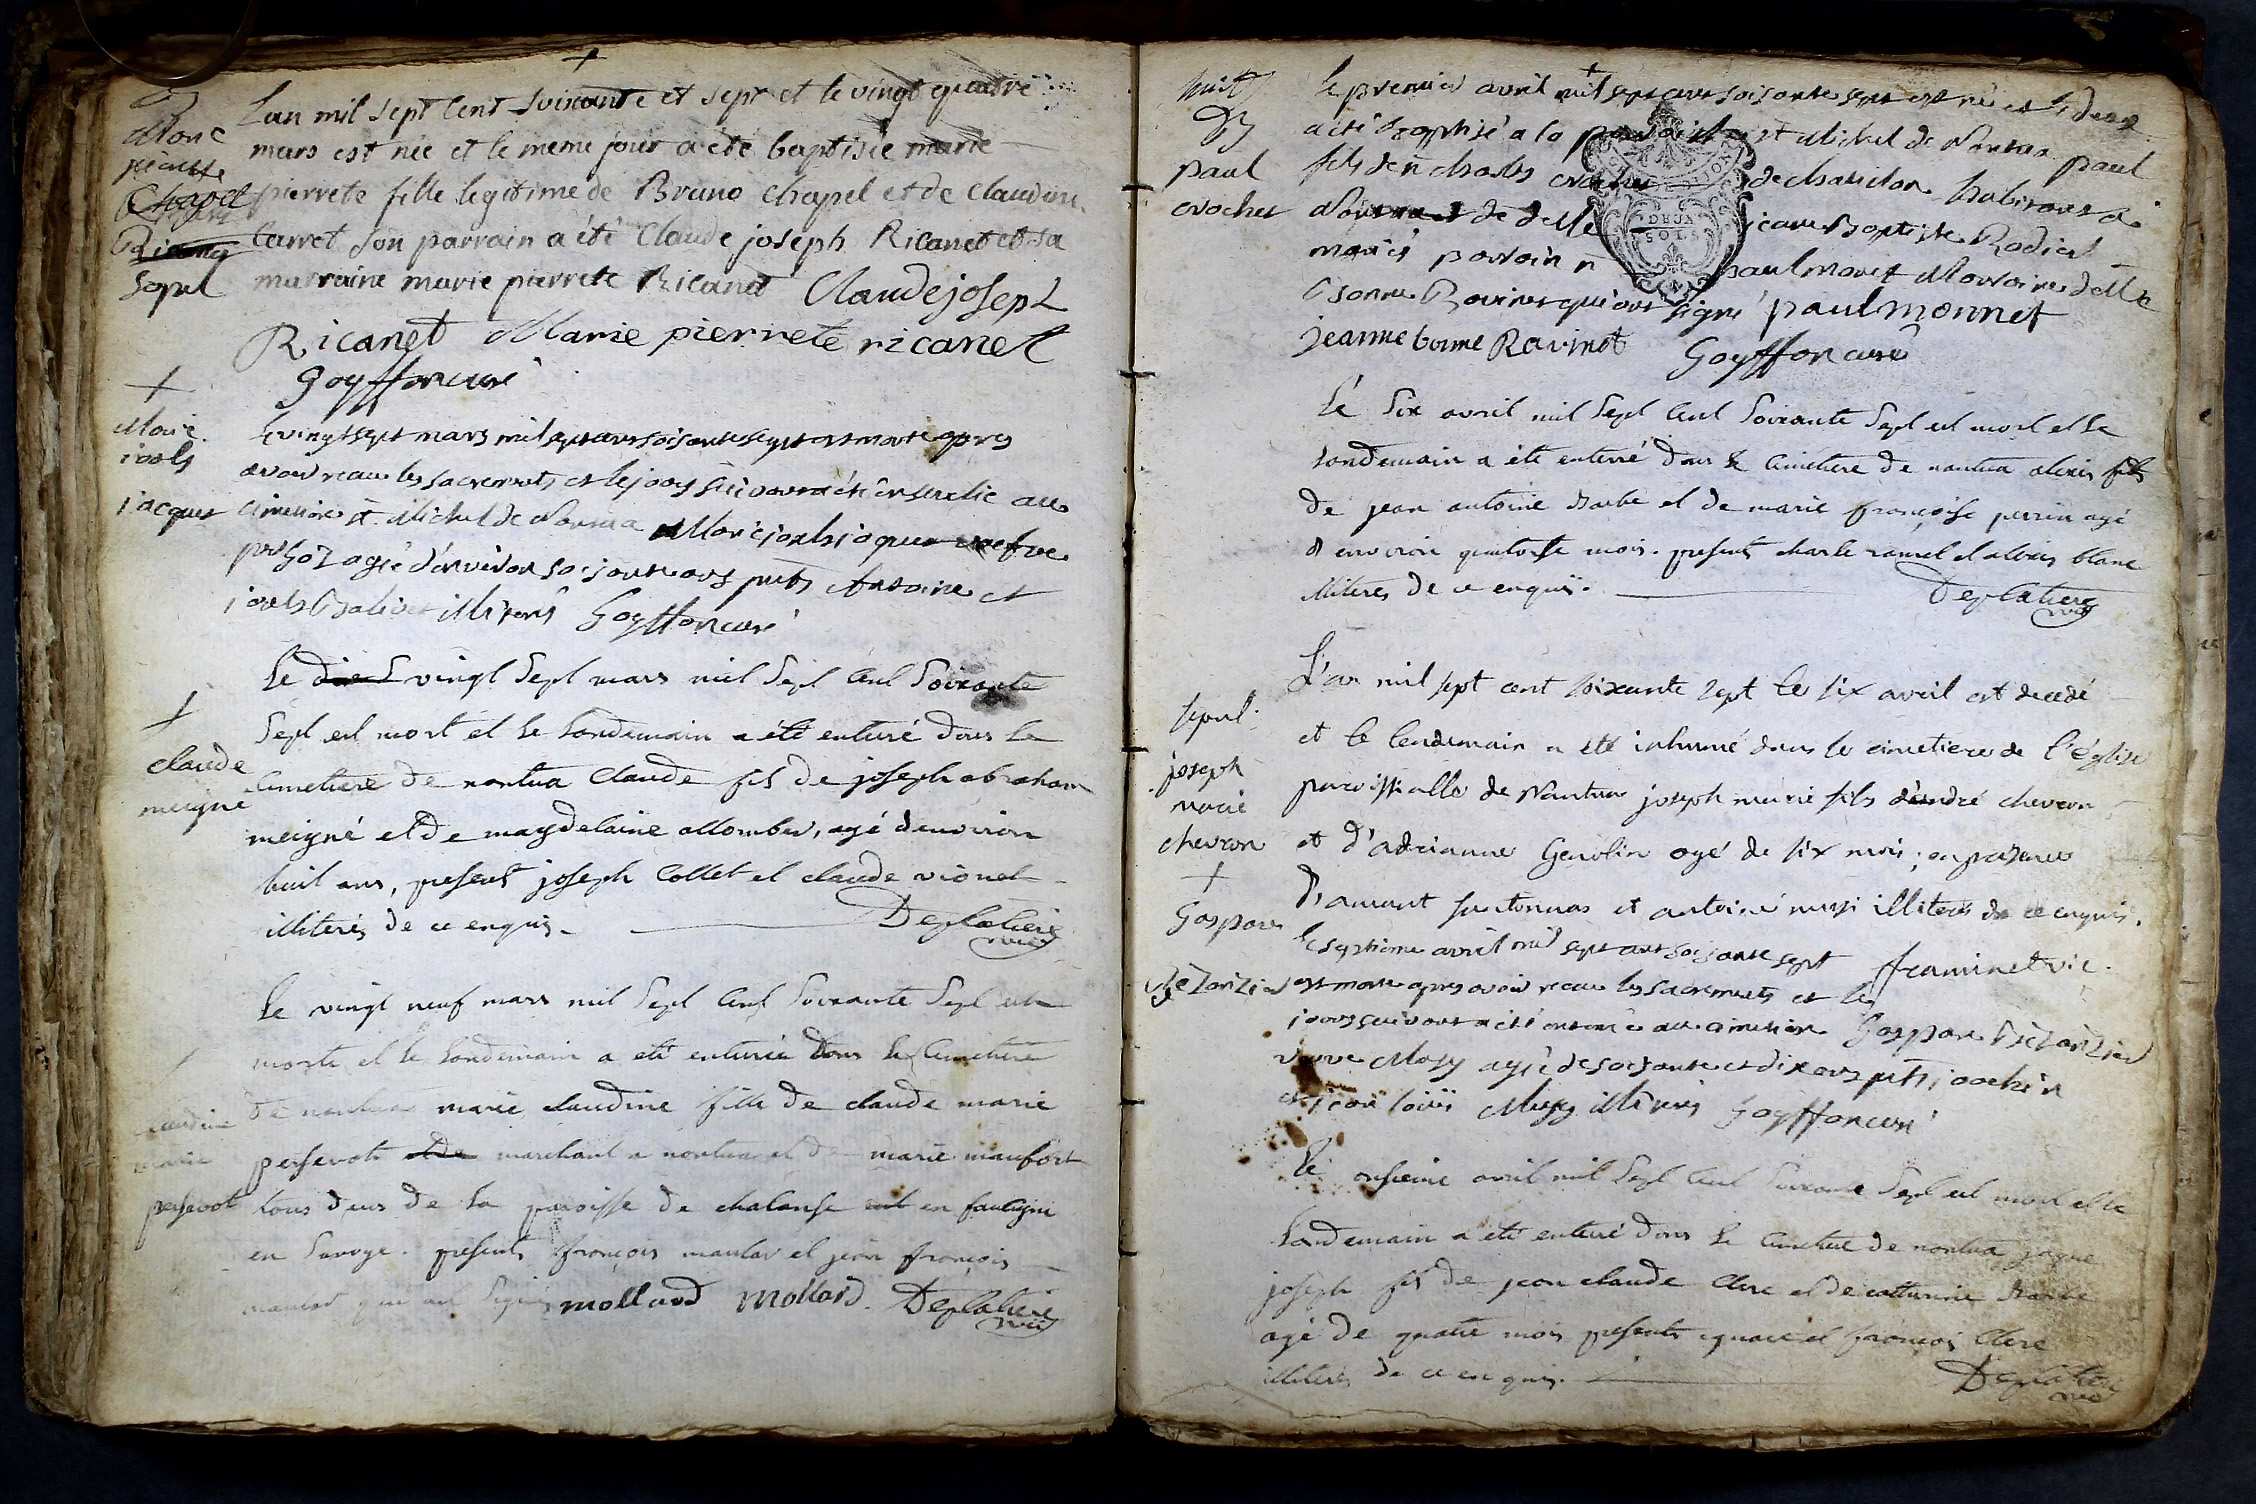 Lan mil sept Cent Soixante et sept et le vingt quatre
mars est née et le meme jour a été baptisée marie
pierrete fille legitime de Bruno Chapel et de Claudine
Carret son parrain a été Claude joseph Ricanet et sa
marraine marie pierrete Ricanet Claude joseph
Ricanet Marie pierrete ricanet
Goyffon curé
Marie
jacquet
le vingt sept mars mil sept cent soisante sept est morte apres
avoir recu les sacrements et le jour suivant a été ensevelie au
cimetiere st Michel de Nantua Marie vefve
agée d'environ soisante ans pnts Antoine et
illiterés Goyffon curé
claude
meigné
Le vingt Sept mars mil Sept Cent Soixante
Sept est mort et le Landemain a été enterré dans le
Cimetiere de nantua Claude fils de joseph abraham
meigné et de magdelaine allombert, agé denviron
huit ans, present joseph Collet et claude vionet
illiterés de ce enquis. Deplatiere
vic
Le vingt neuf mars mil Sept Cent Soixante Sept est
morte et le Landemain a été enterrée dans le Cimetiere
de nantua marie claudine fille de claude marie
persevot marchant a nantua et de marie maufort
tous deux de la paroisse de chalonse en faucigni
en Savoye. presents françois maular et jean françois
maular qui ont Signés mollard mollard. Deplatiere
vic
claudine
marie
persevot
paul
crochet
le premier avril mil sept cent soisante sept est né et le deux
a été baptisé a la st Michel de Nantua paul
fils de habitant a
de delle jeane Baptiste Rodict
mariés parrain paul monet Marraine delle
Bonne Ravinet qui ont signé paul monnet
jeanne bonne Ravinet Goyffon curé
Le Six avril mil Sept Cent Soixante Sept est mort et le
Landemain a été enterré dans le Cimetiere de nantua alexis fils
de jean antoine Barbe et de marie françoise perrin agé
d environ quatorse mois. presents charle ramel et alexis blanc
illiterés de ce enquis. Deplatiere
vic
Sepul.
joseph
marie
chevron
L'an mil sept cent soixante sept le six avril est decedé
et le lendemain a été inhumé dans le cimetiere de l'église
paroissialle de Nantua joseph marie fils d'andré chevron
et d'adrianne Genolin agé de six mois; en presence
et antoine illiterés de ce enquis.
framinet vic.
Gaspare
le septieme avril mil sept cent soisante sept
est morte apres avoir recu les sacrements et le
jour suivant a été enterrée au cimetiere Gaspare
veuve Masy agée de soisante et dix ans pnts joachin
et jean louis Masy illiterés Goyffon curé
Le onsieme avril mil Sept Cent Soixante Sept est mort et le
Landemain a été enterré dans le Cimetiere de nantua jaque
joseph fils de jean claude Clerc et de catherine Barbe
agé de quatre mois presents ignace et françois Clerc
illiterés de ce enquis. Deplatiere
vic